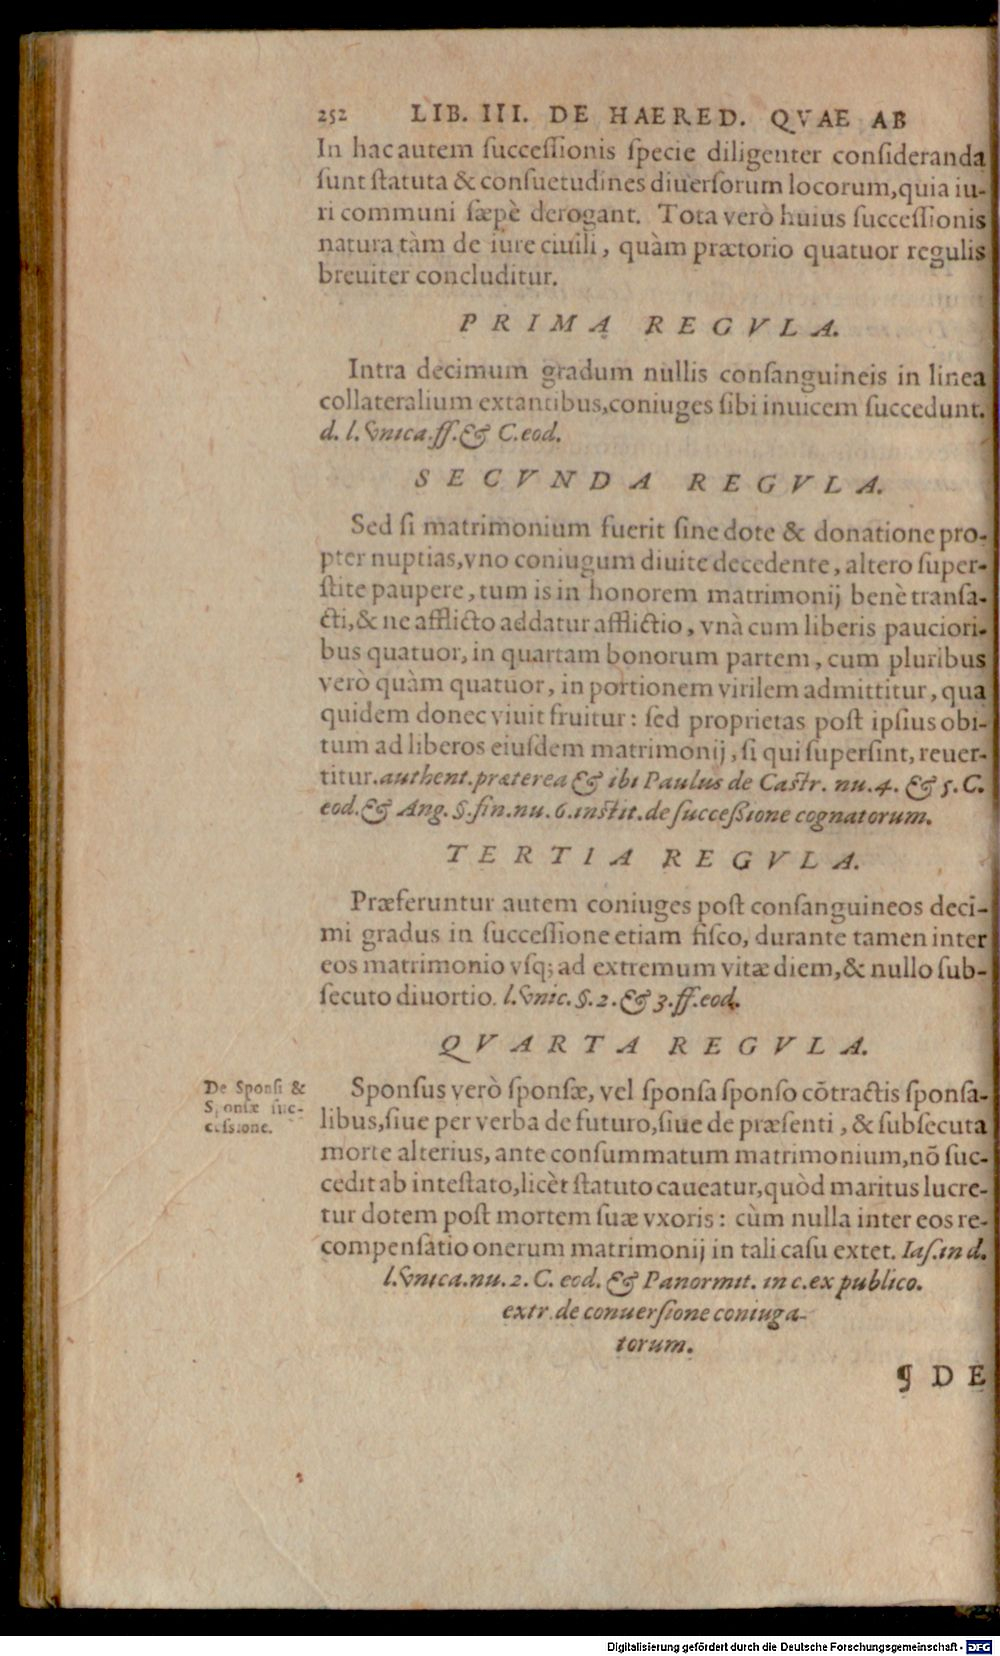 252 LIB. III. DE HAERED. QVAE AB
In hac autem ſucceſſionis ſpecie diligenter conſideranda
ſunt ſtatuta & conſuetudines diuerſorum locorum, quia iu-
ri communi ſæpè derogant. Tota verò huius ſucceſſionis
natura tàm de iure ciuili, quàm prætorio quatuor regulis
breuiter concluditur.
PRIMA REGVLA.
Intra decimum gradum nullis conſanguineis in linea
collateralium extantibus, coniuges ſibi inuicem ſuccedunt.
d. l. vnica. ff. & C. eod.
SECVNDA REGVLA.
Sed ſi matrimonium fuerit ſine dote & donatione pro-
pter nuptias, vno coniugum diuite decedente, altero ſuper-
ſtite paupere, tum is in honorem matrimonij benè tranſa-
cti, & ne afflicto addatur afflictio, vnà cum liberis pauciori-
bus quatuor, in quartam bonorum partem, cum pluribus
verò quàm quatuor, in portionem virilem admittitur, qua
quidem donec viuit fruitur: ſed proprietas poſt ipſius obi-
tum ad liberos eiuſdem matrimonij, ſi qui ſuperſint, reuer-
titur. authent. præterea & ibi Paulus de Caſtr. nu. 4. & 5. C.
eod. & Ang. §. fin. nu. 6. inſtit. de ſucceſsione cognatorum.
TERTIA REGVLA.
Præferuntur autem coniuges poſt conſanguineos deci-
mi gradus in ſucceſſione etiam fiſco, durante tamen inter
eos matrimonio vſq; ad extremum vitæ diem, & nullo ſub-
ſecuto diuortio. l. vnic. §. 2. & 3. ff. eod.
QVARTA REGVLA.
De Sponſi &
Sponſæ ſuc-
ceſsione.
Sponſus verò ſponſæ, vel ſponſa ſponſo cōtractis ſponſa-
libus, ſiue per verba de futuro, ſiue de præſenti, & ſubſecuta
morte alterius, ante conſummatum matrimonium, nō ſuc-
cedit ab inteſtato, licèt ſtatuto caueatur, quòd maritus lucre-
tur dotem poſt mortem ſuæ vxoris: cùm nulla inter eos re-
compenſatio onerum matrimonij in tali caſu extet. Iaſ. in d.
l. vnica. nu. 2. C. eod. & Panormit. in c. ex publico.
extr. de conuerſione coniuga-
torum.
¶ DE
Digitalisierung gefördert durch die Deutsche Forschungsgemeinschaft - DFG